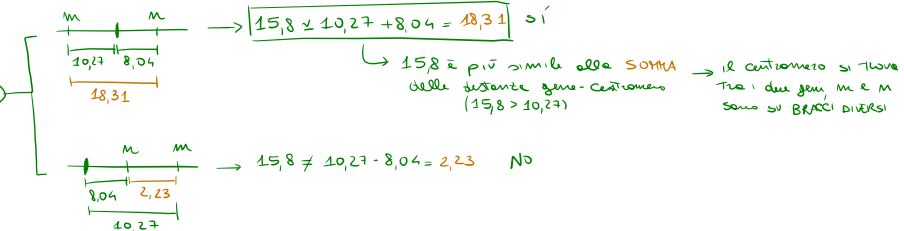 m n
15,8 ≃ 10,27 + 8,04 = 18,31 sí
10,27 8,04
18,31
15,8 è più simile alla SOMMA
delle distanze gene-centromero
(15,8 > 10,27)
il centromero si trova
tra i due geni, m e n
sono su BRACCI DIVERSI
n m
15,8 ≠ 10,27 - 8,04 = 2,23 NO
8,04 2,23
10,27